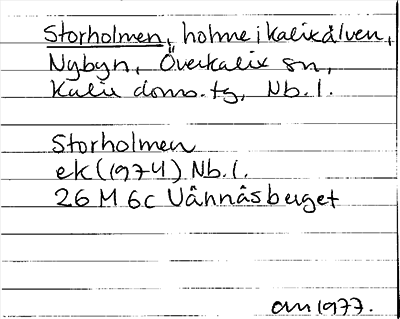 Storholmen, holme i kalixälven,
Nybyn, Överkalix sn,
Kalix doms. tg, Nb. l.
Storholmen
ek (1974) Nb. l.
26 M 6c Vännäsberget
am 1977.